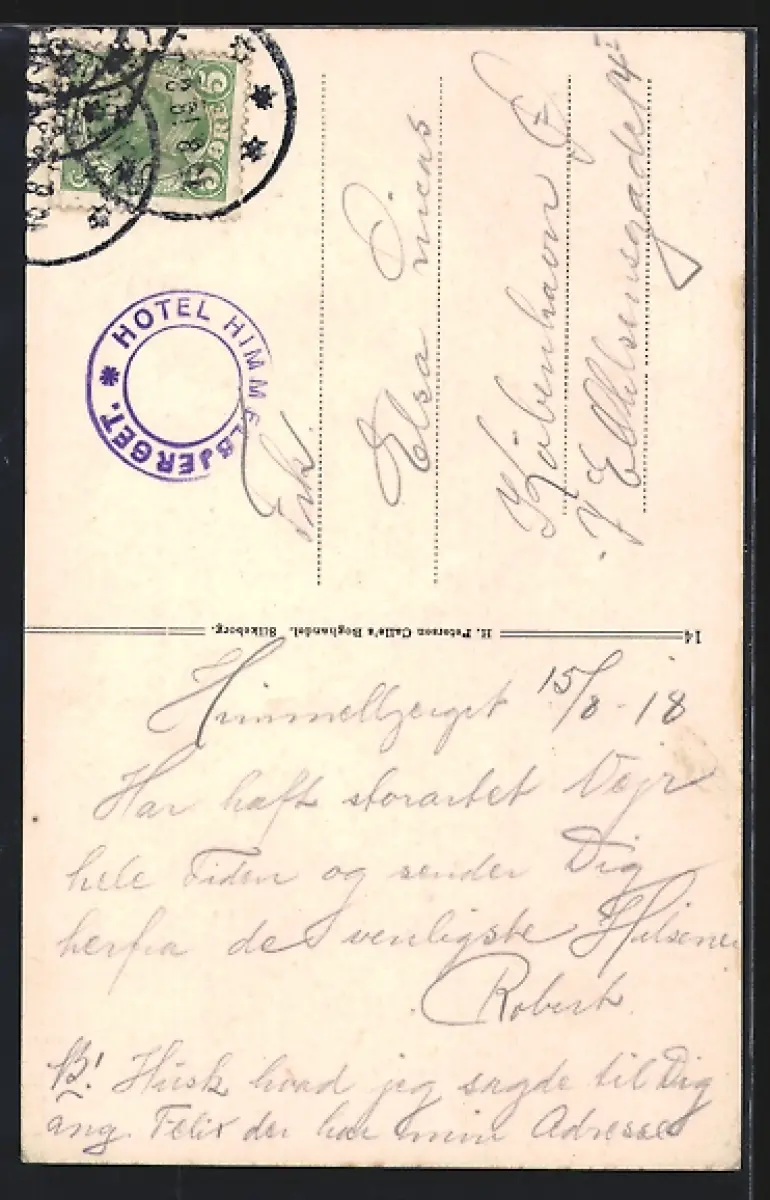 5 ØRE 5
HOTEL HIMMELBJERGET. *
Frk.
Elsa
København F
Edthelsensgade 4
14 H. Peterson Calle's Boghandel. Silkeborg.
Himmelbjerget 15/8-18
Har haft storartet Vejr
hele Tiden og sender Dig
herfra de venligste Hilsener
Robert.
NB! Husk hvad jeg sagde til Dig
ang. Felix der har min Adresse